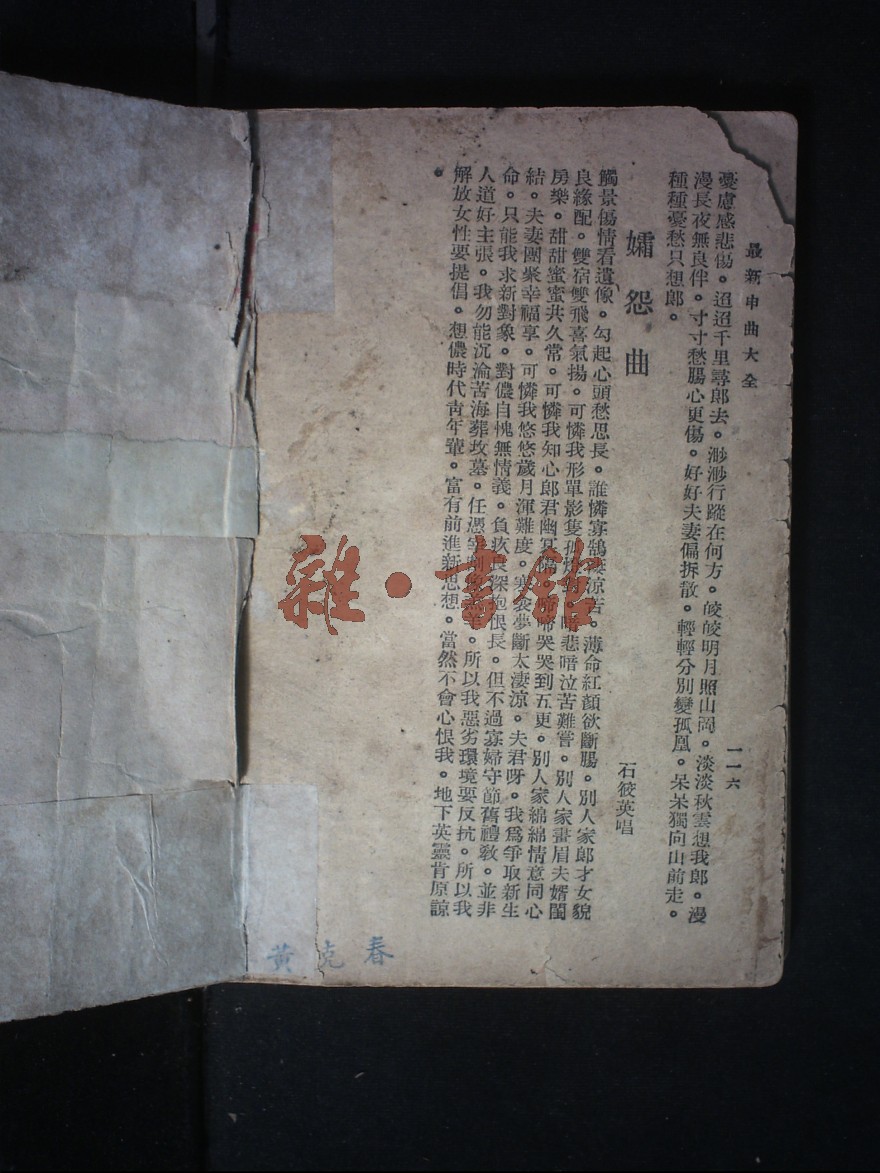 最新申曲大全
一一六
憂慮感悲傷。迢迢千里尋郎去。渺渺行蹤在何方。皎皎明月照山岡。淡淡秋雲想我郎。漫
漫長夜無良伴。寸寸愁腸心更傷。好好夫妻偏拆散。輕輕分別變孤凰。呆呆獨向山前走。
種種憂愁只想郎。
孀怨曲
石筱英唱
觸景傷情看遺像。勾起心頭愁思長。誰憐寡鵠淒涼苦。薄命紅顏欲斷腸。別人家郎才女貌
良緣配。雙宿雙飛喜氣揚。可憐我形單影隻孤燈對。暗悲暗泣苦難嘗。別人家畫眉夫婿閨
房樂。甜甜蜜蜜共久常。可憐我知心郎君幽冥隔。啼啼哭哭到五更。別人家綿綿情意同心
結。夫妻團聚幸福享。可憐我悠悠歲月渾難度。寒衾夢斷太淒涼。夫君呀。我爲爭取新生
命。只能我求新對象。對儂自愧無情義。負疚良深抱恨長。但不過寡婦守節舊禮教。並非
人道好主張。我勿能沉淪苦海葬坟墓。任憑宰割像羔羊。所以我惡劣環境要反抗。所以我
解放女性要提倡。想儂時代靑年輩。富有前進新思想。當然不會心恨我。地下英靈肯原諒
。
雜·書館
黃克春